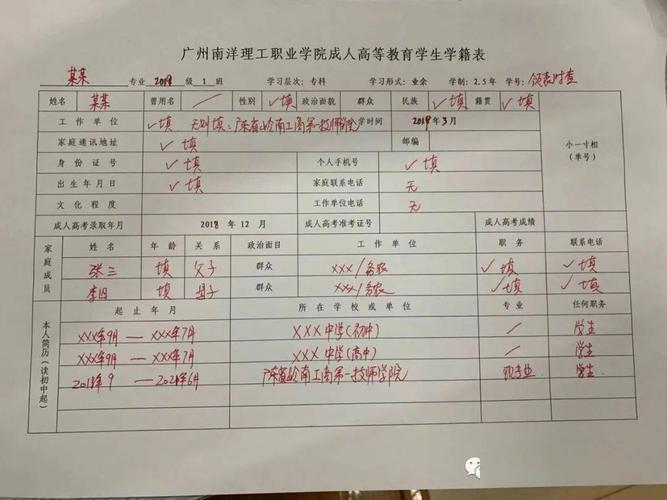 广州南洋理工职业学院成人高等教育学生学籍表
某某 专业 2019 级 1 班 学习层次：专科 学习形式：业余 学制：2.5年 学号：领表时查
姓名 某某 曾用名 / 性别 ✓填 政治面貌 群众 民族 ✓填 籍贯 ✓填 小一寸相（单号）
工作单位 ✓填 无则填：广东省岭南工商第一技师学院 入学时间 2019年3月
家庭通讯地址 ✓填 邮编
身份证号 ✓填 个人手机号 ✓填
出生年月日 ✓填 家庭联系电话 无
文化程度 工作单位电话 无
成人高考录取年月 2018年12月 成人高考准考证号 成人高考成绩
家庭成员 姓名 年龄 关系 政治面目 工作单位 职务 联系电话
张三 填 父子 群众 xxx/务农 ✓填 ✓填
李四 填 母子 群众 xxx/务农 ✓填 ✓填
本人简历（读初中起） 起止年月 所在学校或单位 专业 任何职务
XXX年9月 — XXX年7月 XXX中学(初中) / 学生
XXX年9月 — XXX年7月 XXX中学(高中) / 学生
9 — 年6月 广东省岭南工商第一技师学院 现专业 学生